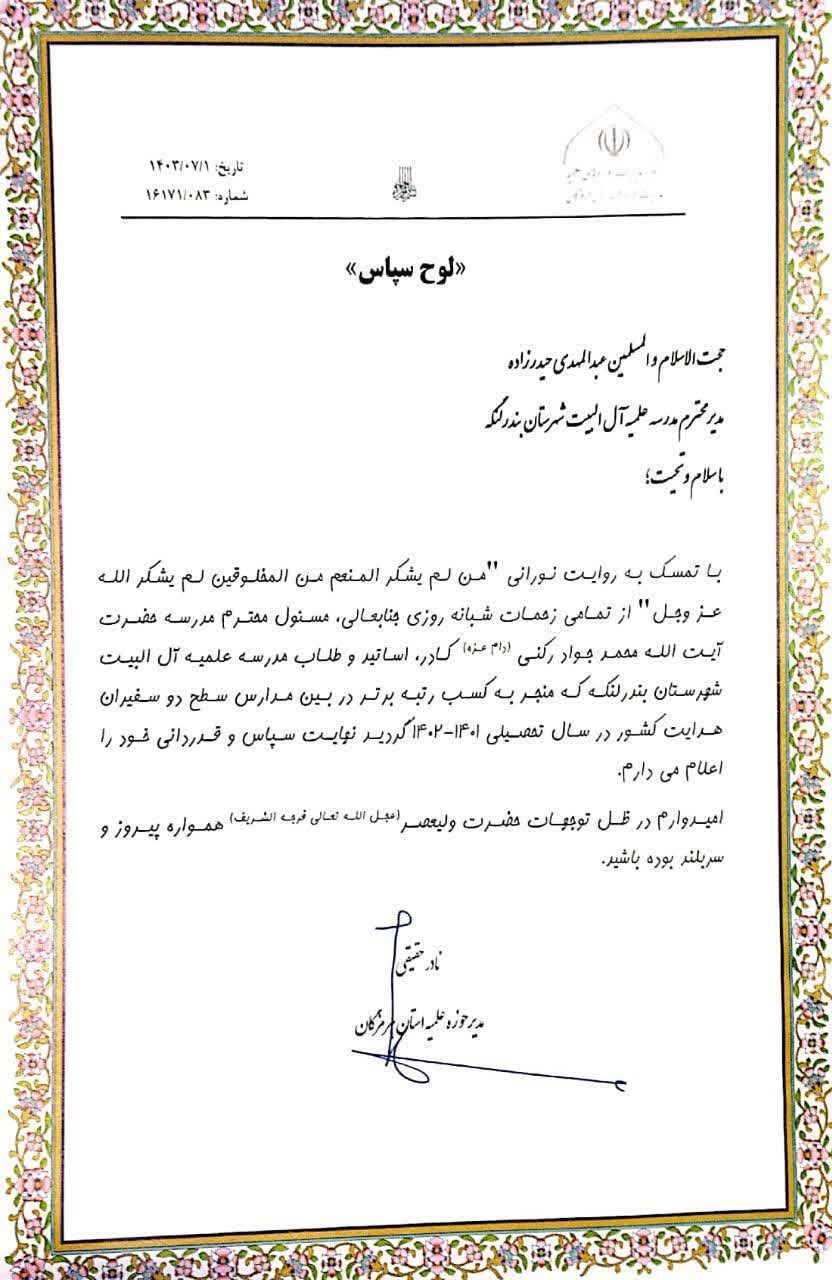 تاریخ: ۱۴۰۳/۰۷/۱
شماره: ۱۶۱۷۱/۰۸۳
«لوح سپاس»
حجت الاسلام والمسلمین عبدالمهدی حیدرزاده
مدیر محترم مدرسه علمیه آل البیت شهرستان بندرلنگه
باسلام و تحیت؛
با تمسک به روایت نورانی "من لم یشکر المنعم من المخلوقین لم یشکر الله
عز وجل" از تمامی زحمات شبانه روزی جنابعالی، مسئول محترم مدرسه حضرت
آیت الله محمد جواد رکنی (دام عزه) کادر، اساتید و طلاب مدرسه علمیه آل البیت
شهرستان بندرلنگه که منجر به کسب رتبه برتر در بین مدارس سطح دو سفیران
هدایت کشور در سال تحصیلی ۱۴۰۱-۱۴۰۲ گردید نهایت سپاس و قدردانی خود را
اعلام می دارم.
امیدوارم در ظل توجهات حضرت ولیعصر(عجل الله تعالی فرجه الشریف) همواره پیروز و
سربلند بوده باشید.
نادر حقیقی
مدیر حوزه علمیه استان هرمزگان